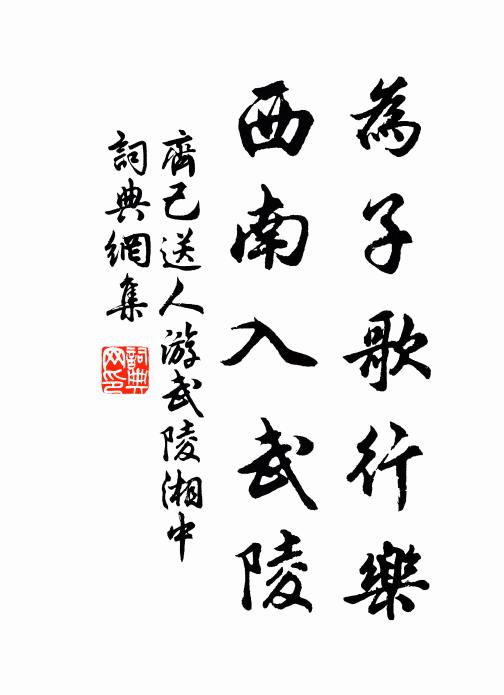 為子歌行樂
西南入武陵
齊己送人游武陵湘中
詞典網集
詞典網印